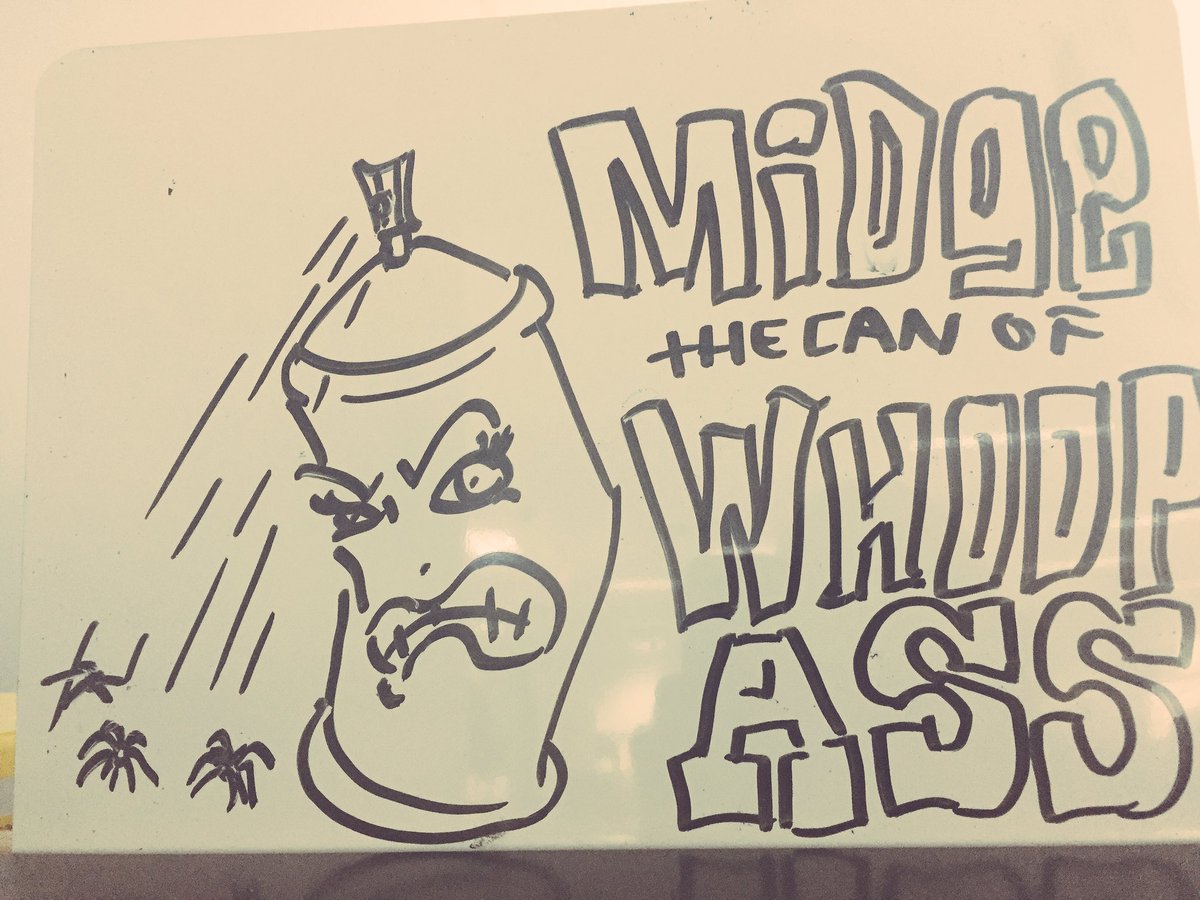 MiDge
THE CAN OF
WHOOP
ASS